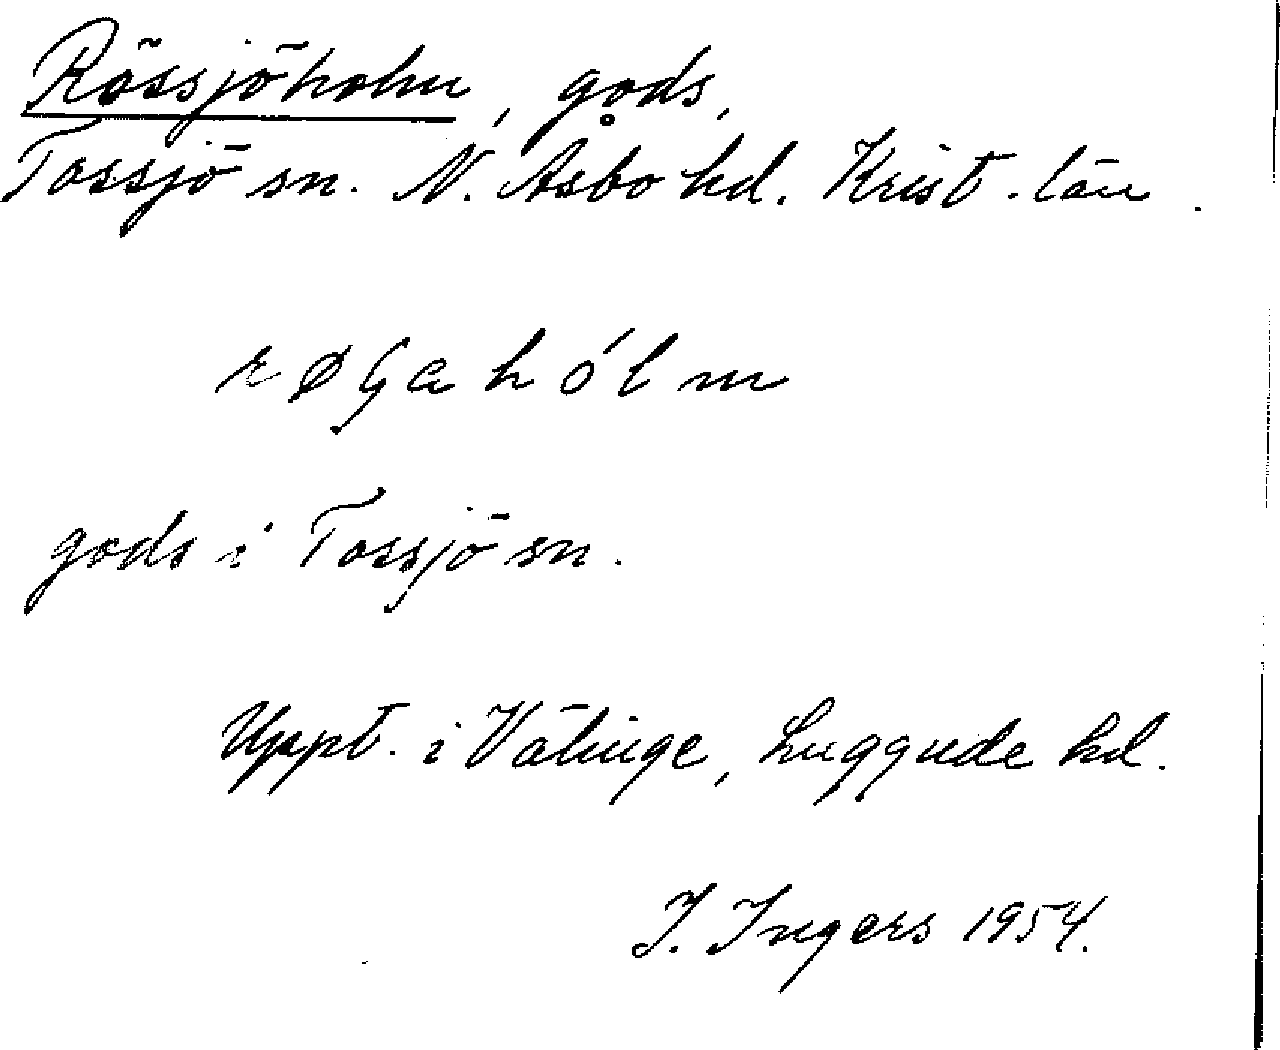 Rössjöholm, gods,
Tossjö sn. N. Åsbo hd. Krist. län.
gods i Tossjö sn.
Uppt. i Välinge, Luggude hd.
I. Ingers 1954.